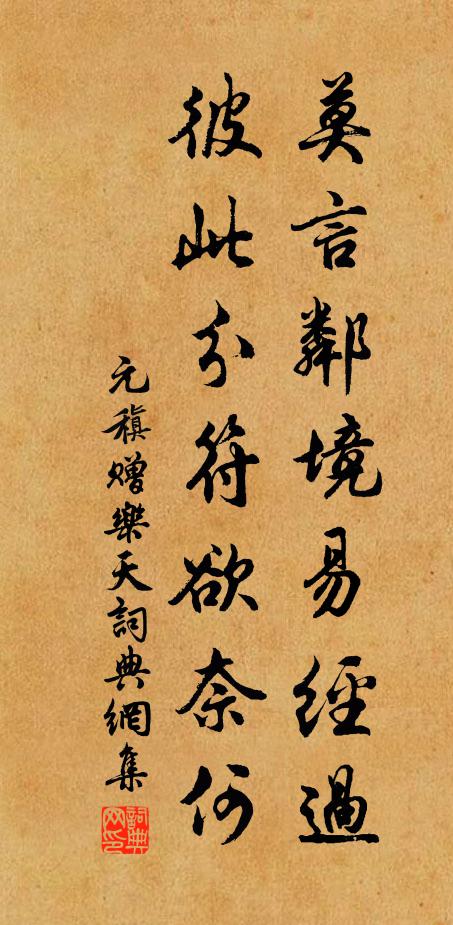 莫言鄰境易經過
彼此分符欲奈何
元稹贈樂天詞典網集
詞典網印